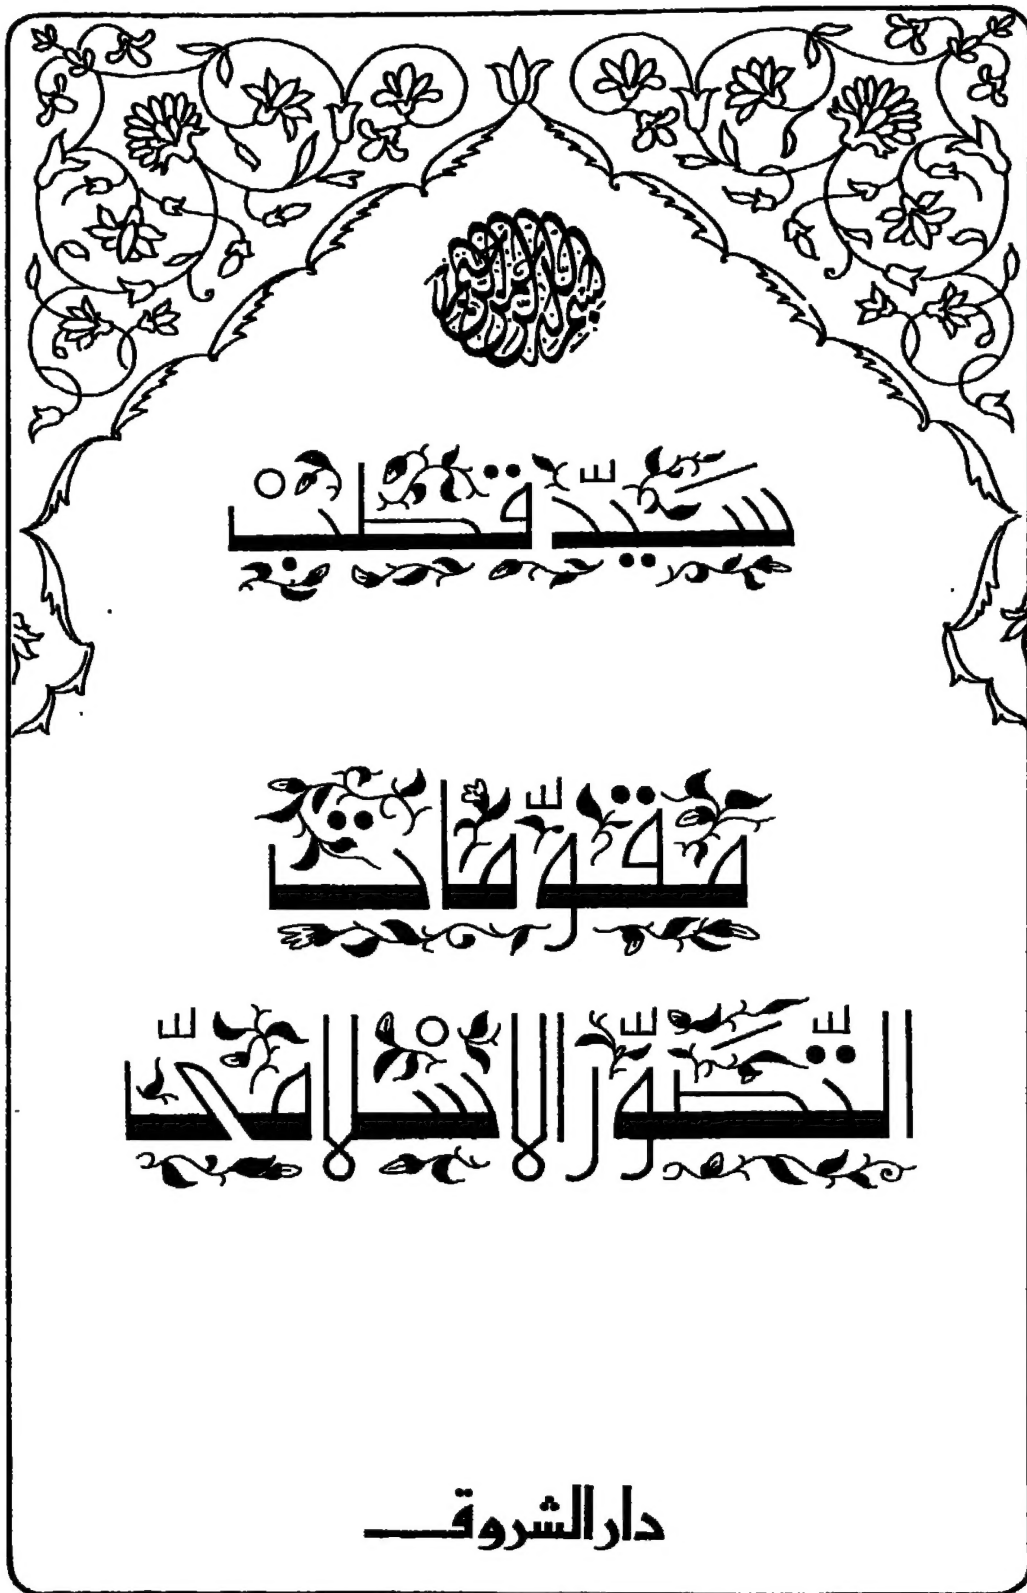 بسم الله الرحمن الرحيم
سَيّد قُطبْ
مقوّمات
التَّصَوّر الإسْلاميّ
دار الشروق